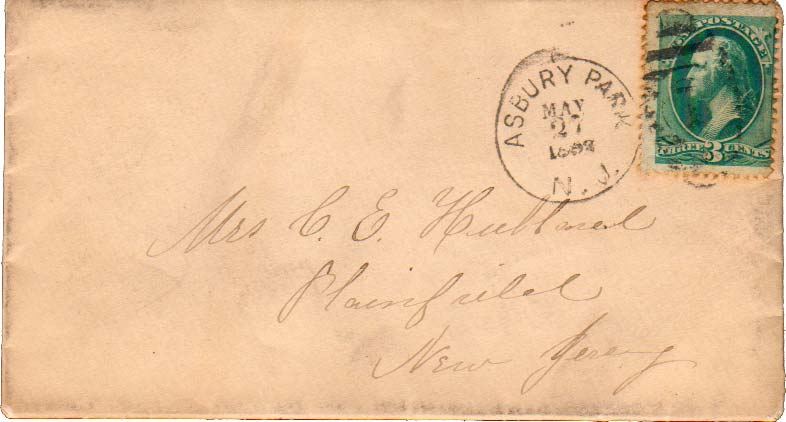 POSTAGE
THREE 3 CENTS
ASBURY PARK
MAY
27
N.J.
Mrs C. E.
Plainfield
New Jersey